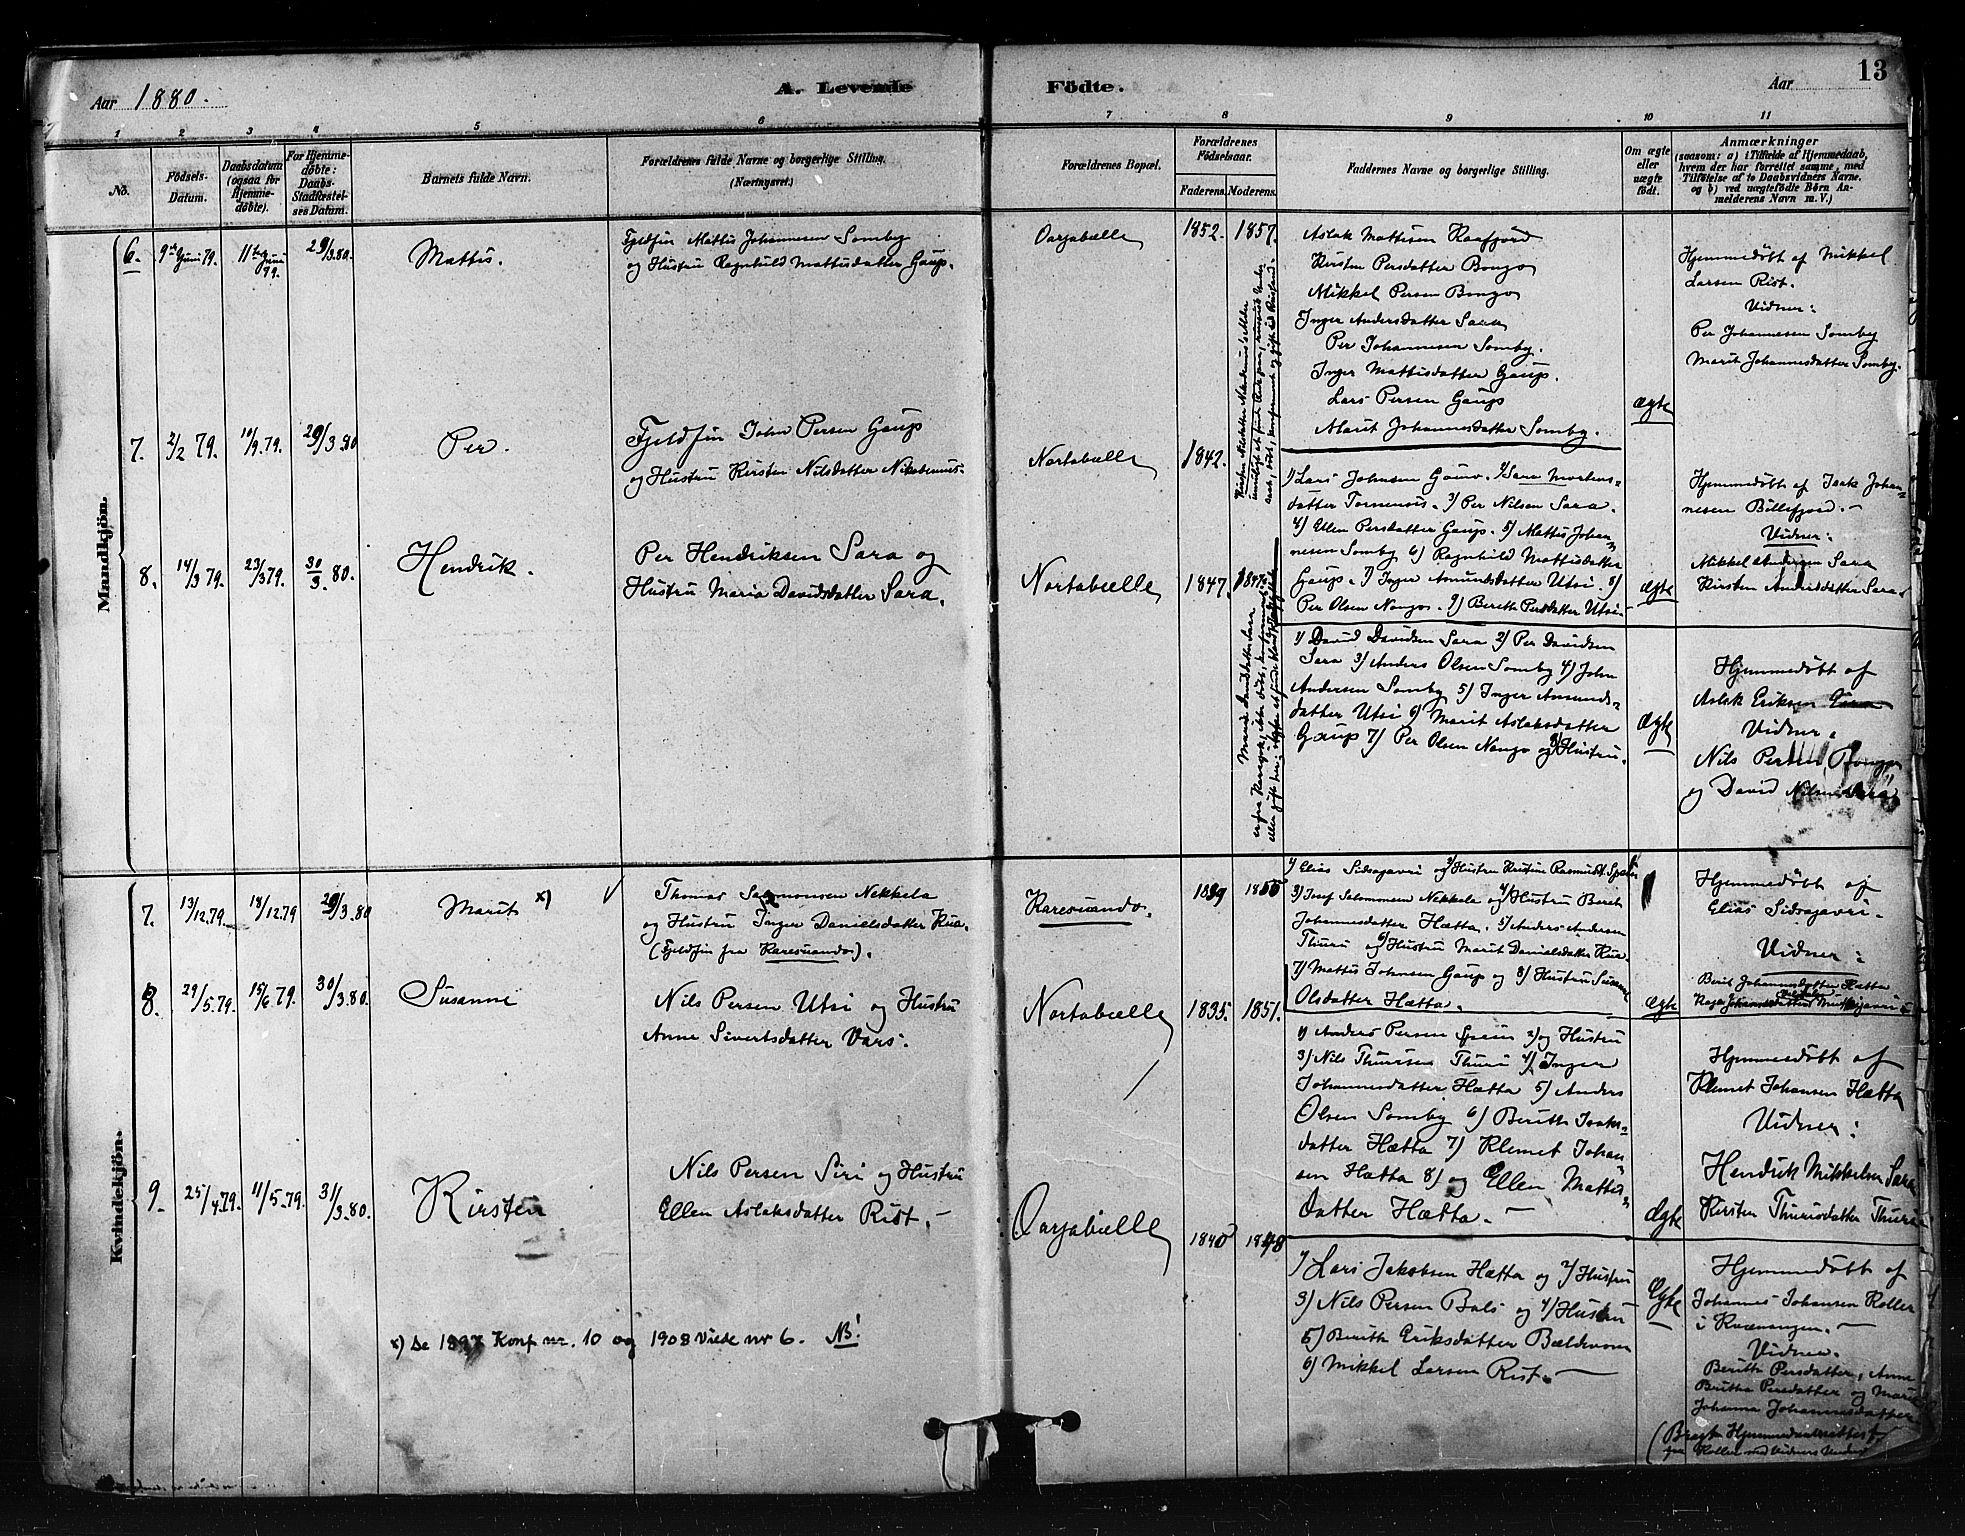 Aar 1880.
A. Levende
Födte.
Aar
13
1
2
3
4
5
6
7
8
9
10
11
No.
Födsels-
Datum.
Daabsdatum
(ogsaa for
Hjemme-
döbte).
For Hjemme-
döbte:
Daabs-
Stadfæstel-
ses Datum.
Barnets fulde Navn.
Forældrenes fulde Navne og borgerlige Stilling.
(Næringsvei.)
Forældrenes Bopæl.
Forældrenes
Födselsaar.
Faderens.
Moderens.
Faddernes Navne og borgerlige Stilling.
Om ægte
eller
uægte
födt.
Anmærkninger
(saasom: a) i Tilfælde af Hjemmedaab,
hvem der har forrettet samme, med
Tilföielse af to Daabsvidners Navne,
og b) ved uægtefödte Börn An-
melderens Navn m. V.)
Mandkjön.
6.
9de Juni 79.
11te Juni
79.
29/3.80.
Mattis.
Fjeldfin Mattis Johannesen Somby
og Hustru Ragnhild Mattisdatter Gaup.
Oarjabælle
1852.
1857.
Aslak Mattisen Kaafjord
Kirsten Persdatter Bongo
Mikkel Persen Bongo
Inger Andersdatter Sara
Per Johannesen Somby.
Inger Mattisdatter Gaup.
Lars Persen Gaup
Marit Johannesdatter Somby.
ægte
Hjemmedøbt af Mikkel
Larsen Rist.
Vidner:
Per Johannesen Somby
Marit Johannesdatter Somby.
7.
2/2 79.
10/9.79.
29/3.80
Per.
Fjeldfin John Persen Gaup
og Hustru Kirsten Nilsdatter Nikodemus.
Nortabælle
1842.
1) Lars Johnsen Gaino. 2) Sara Mortens-
datter Tornensis. 3) Per Nilsen Sara.
4) Ellen Persdatter Gaup. 5) Mattis Johan-
nesen Somby 6) Ragnhild Mattisdatter
Gaup. 7) Inger Amundsdatter Utsi. 8)
Per Olsen Nango. 9) Berith Persdatter Utsi-
ægte
Hjemmedøbt af Isak Johan-
nesen Billefjord. -
Vidner:
Mikkel Andersen Sara
Kirsten Andersdatter Sara
8.
14/3 79.
23/3 79.
30/3. 80.
Hendrik.
Per Hendriksen Sara og
Hustru Maria Davidsdatter Sara.
Nortabælle
1847.
1) David Davidsen Sara 2) Per Davidsen
Sara 3) Anders Olsen Somby 4) John
Andersen Somby 5) Inger Amunds-
datter Utsi 6) Marit Aslaksdatter
Gaup 7) Per Olsen Nango og 8) Hustru.
ægte
Hjemmedøbt af
Aslak Eriksen
Vidner.
Nils Persen Bongo
og David Nilsen Sara
Kvindekjön.
7.
13/12.79.
18/12.79
29/3.80
Marit x)
Thomas Salomonsen Nekkela
og Hustru Inger Danielsdatter Kua.
(Fjeldfin fra Karesuando).
Karesuando.
1839
1) Elias Sidsagavri og 2) Hustru Kristine Rasmusd.
3) Josef Salomonsen Nekkela og 4) Hustru Berit
Johannesdatter Hætta. 5) Anders Andersen
Thuri og 6) Hustru Marit Danielsdatter Kua.
7) Mattis Johnsen Gaup og 8) Hustru Susanne
Olsdatter Hætta.
Hjemmedøbt af
Elias Sidsagavri.
Vidner:
Berit Johannesdatter Hætta
8.
29/5.79.
15/6 79.
30/3.80.
Susanne
Nils Persen Utsi og Hustru
Anne Sivertsdatter Vars.
Nortabælle
1835.
1851.
1) Anders Persen 2) og Hustru
3) Nils Thurisen Thuri 4) Inger
Johannesdatter Hætta 5) Anders
Olsen Somby 6) Berith Isaks-
datter Hætta 7) Klemet Johan-
sen Hætta 8) og Ellen Mattis-
datter Hætta. -
ægte
Hjemmedøbt af
Klemet Johansen Hætta
Vidner:
Hendrik Mikkelsen Sara
Kirsten Thurisdatter Thuri
9.
25/4.79.
11/5.79.
31/3.80.
Kirsten
Nils Persen Siri og Hustru
Ellen Aslaksdatter Rist. -
Oarjabælle
1840
1848
1) Lars Jakobsen Hætta og 2) Hustru
3) Nils Persen Bals og 4) Hustru
5) Berith Eriksdatter Bældevom
6) Mikkel Larsen Rist. -
ægte
Ægte
Hjemmedøbt af
Johannes Johansen Koller
i Kvænangen. -
Vidner.
Berith Persdatter, Anne
Britha Persdatter og Marie
Johanna Johannesdatter
x) Se 1897 Konf nr. 10 og 1908 Viede nr 6. NB!